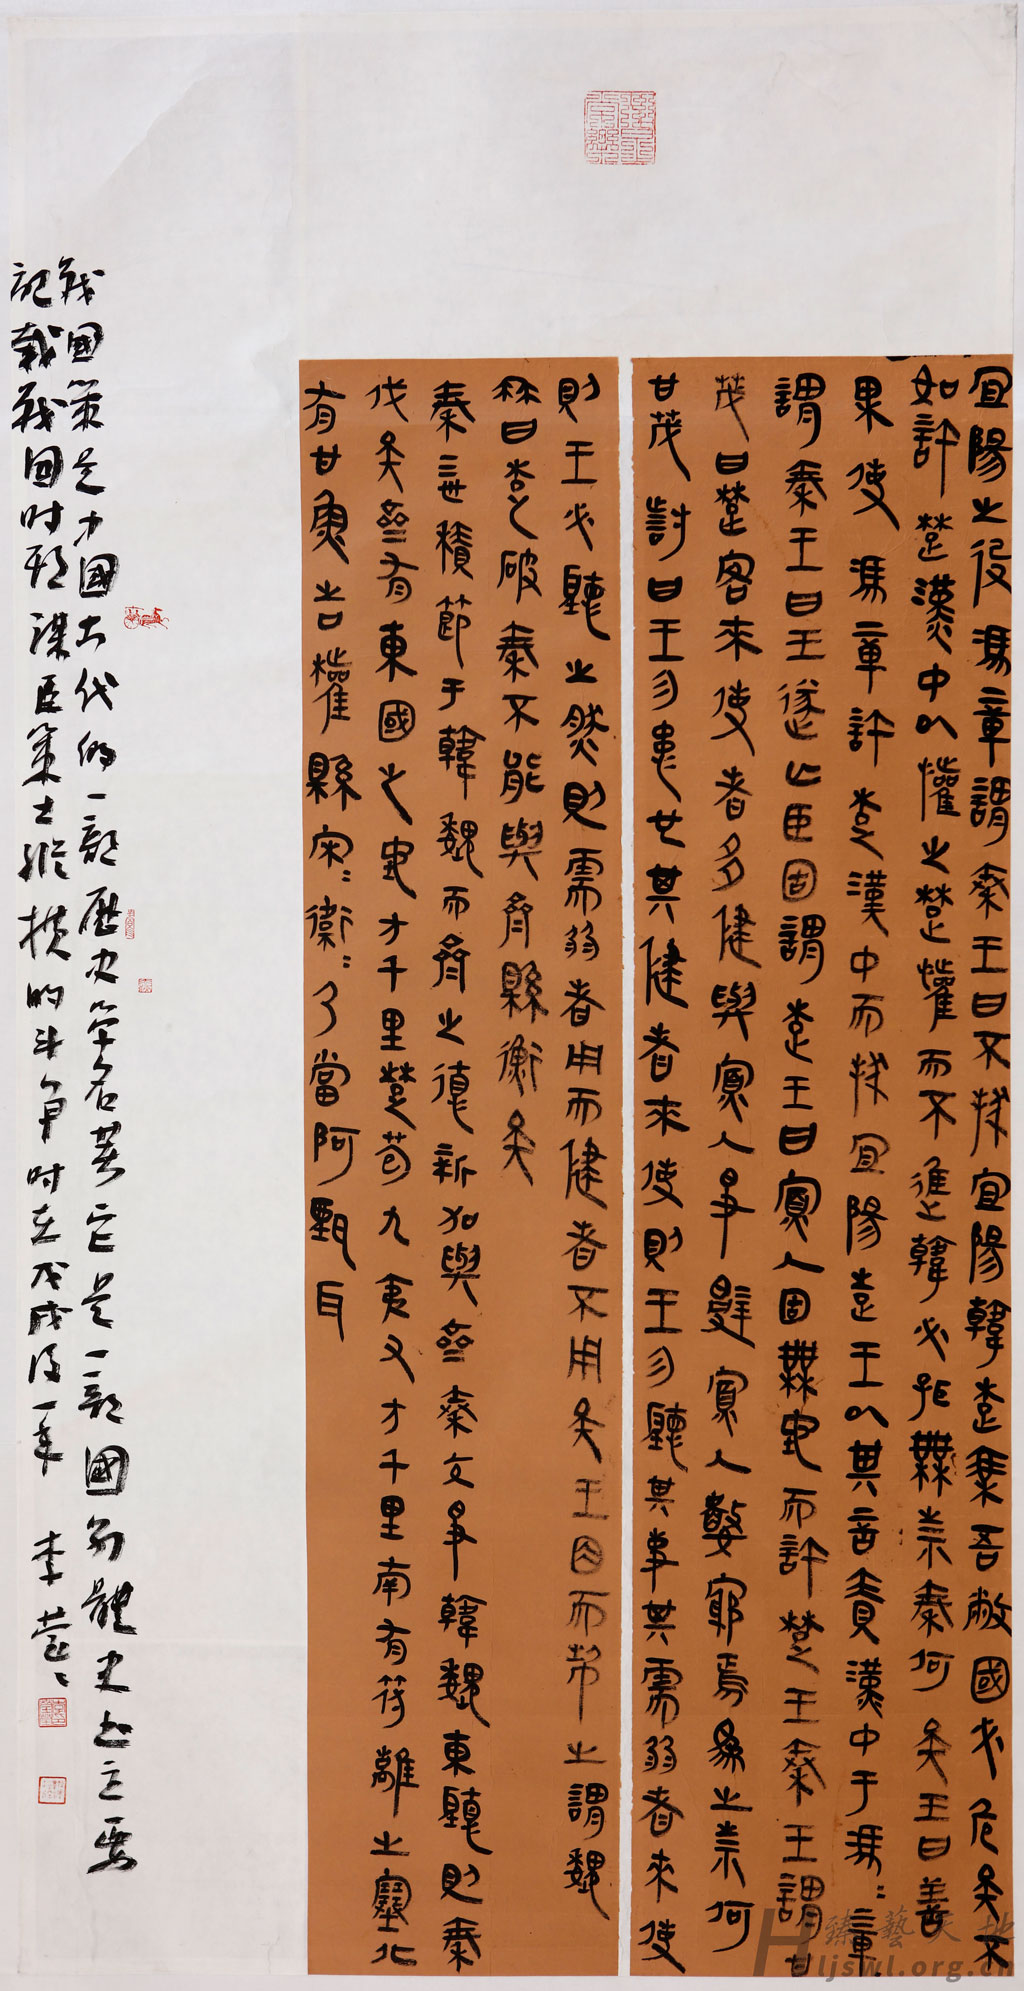 宜陽之役馮章謂秦王曰不拔宜陽韓楚乘吾敝國必危矣不
如許楚漢中以懽之楚懽而不進韓必孤無奈秦何矣王曰善
果使馮章許楚漢中而拔宜陽楚王以其言責漢中于馮=章
謂秦王曰王遂亡臣固謂楚王曰寡人固無地而許楚王秦王謂甘
茂曰楚客來使者多健與寡人爭辭寡人數窮焉為之奈何
甘茂對曰王勿患也其健者來使則王勿聽其事其需弱者來使
則王必聽之然則需弱者用而健者不用矣王因而制之謂魏
冉曰楚破秦不能與齊縣衡矣
秦三世積節于韓魏而齊之德新加與齊秦交爭韓魏東聽則秦
伐矣齊有東國之地方千里楚苞九夷又方千里南有符離之塞北
有甘魚之口權縣宋=衛=乃當阿甄耳
戰國策是中國古代的一部歷史學名著它是一部國別體史書主要
記載戰國时期謀臣策士縱橫的斗爭时在戊戌后一年 李
臻藝天地
Hljswl.org.cn